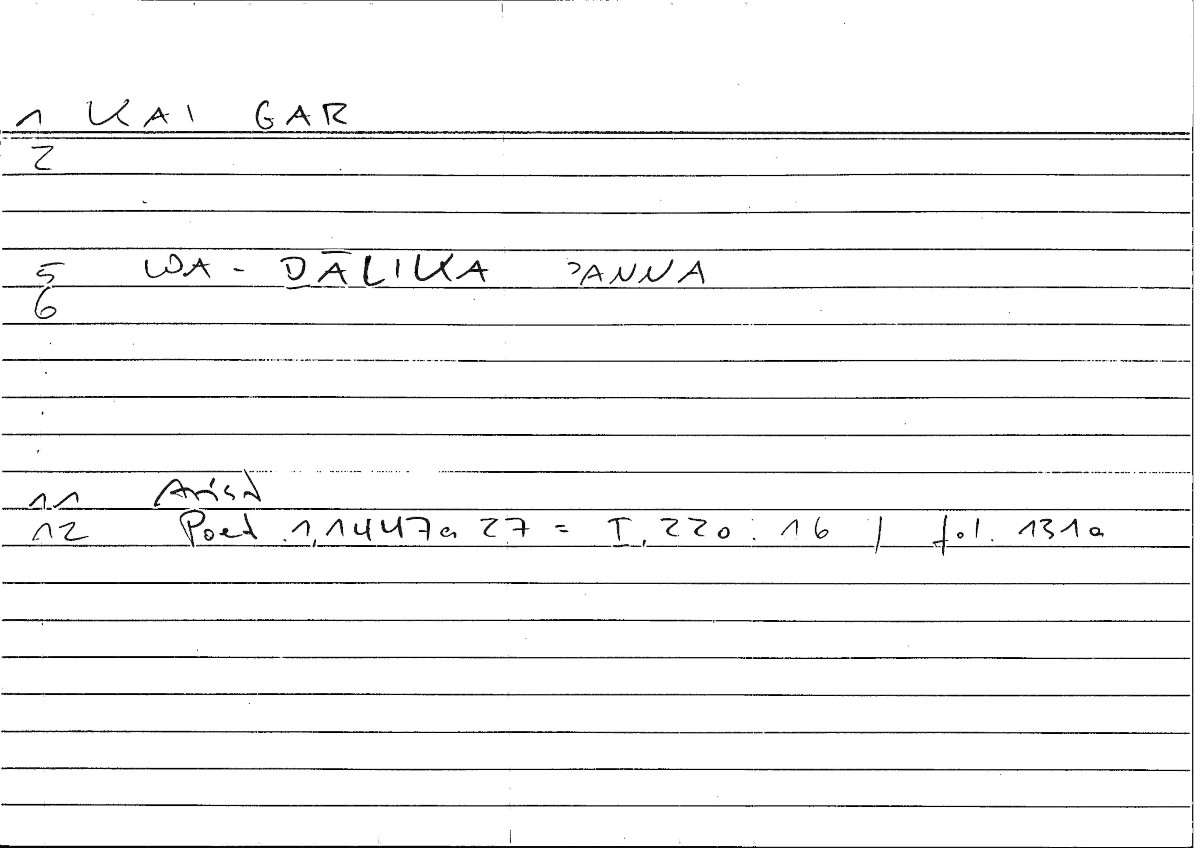 1 KAI GAR
2
5 WA - ḎĀLIKA ʾANNA
6
11 Arist
12 Poet .1,1447a 27 = I, 220 : 16 / fol. 131a